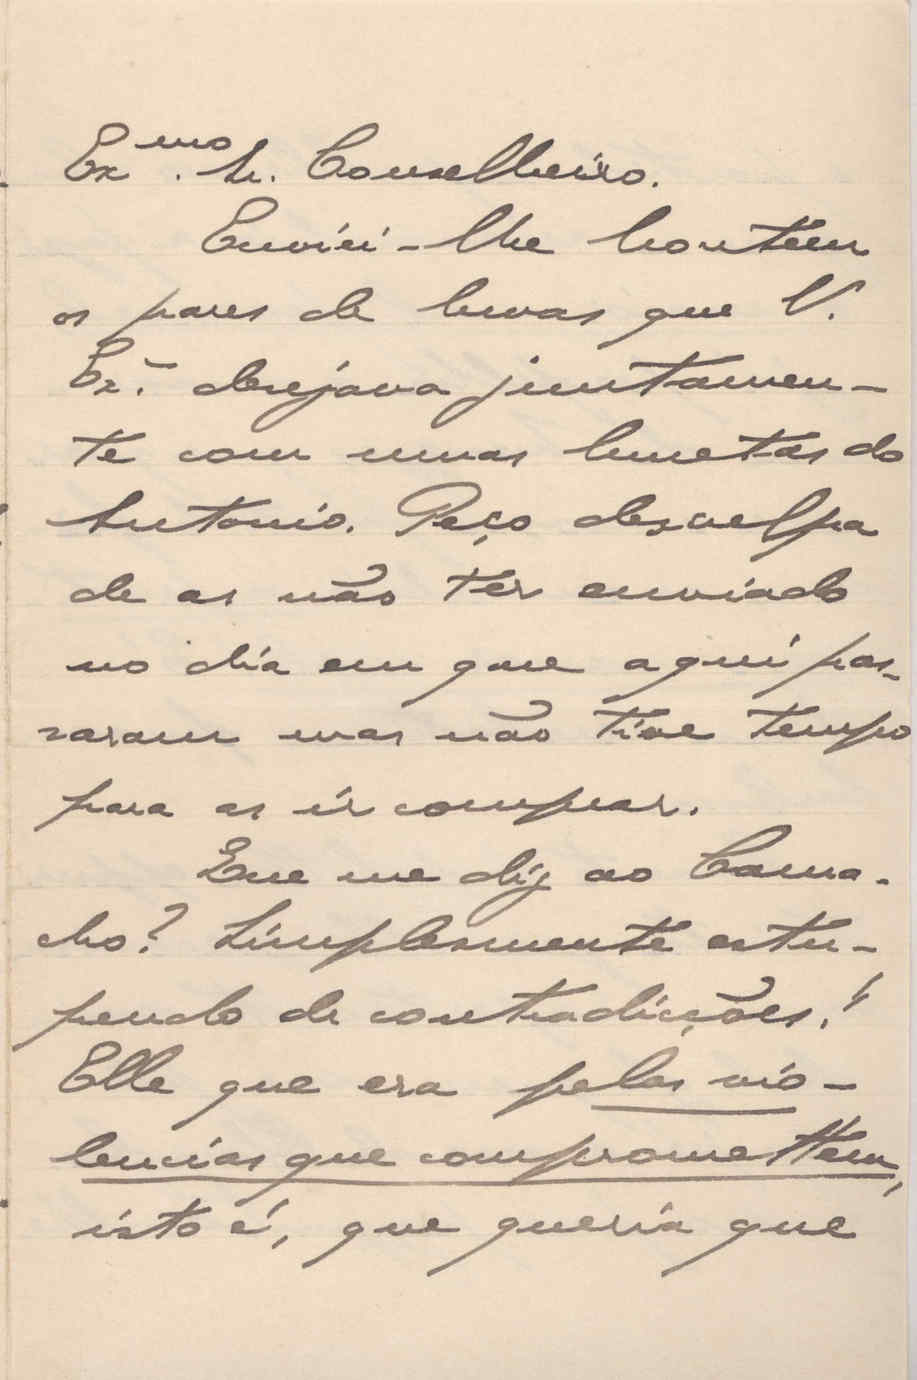 Ex.mo Sr. Conselheiro.
Enviei-lhe hontem
os pares de luvas que V.
Ex.ª desejava juntamen-
te com umas lunetas do
Antonio. Peço desculpa
de as não ter enviado
no dia em que aqui pas-
saram mas não tive tempo
para as ir comprar.
Que me diz ao Cama-
cho? Simplesmente estu-
pendo de contradicções!!
Elle que era pelas vio-
lencias que compromettem,
isto é, que queria que